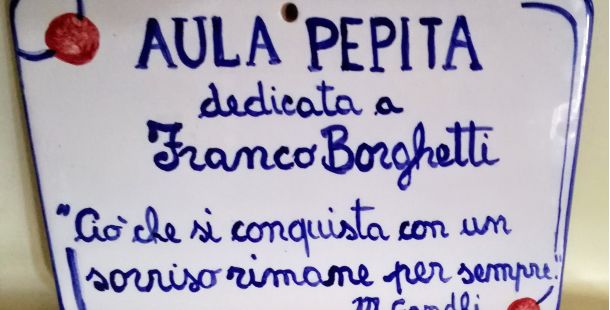 AULA PEPITA
dedicata a
Franco Borghetti
"Ciò che si conquista con un
sorriso rimane per sempre."
M. Gandhi